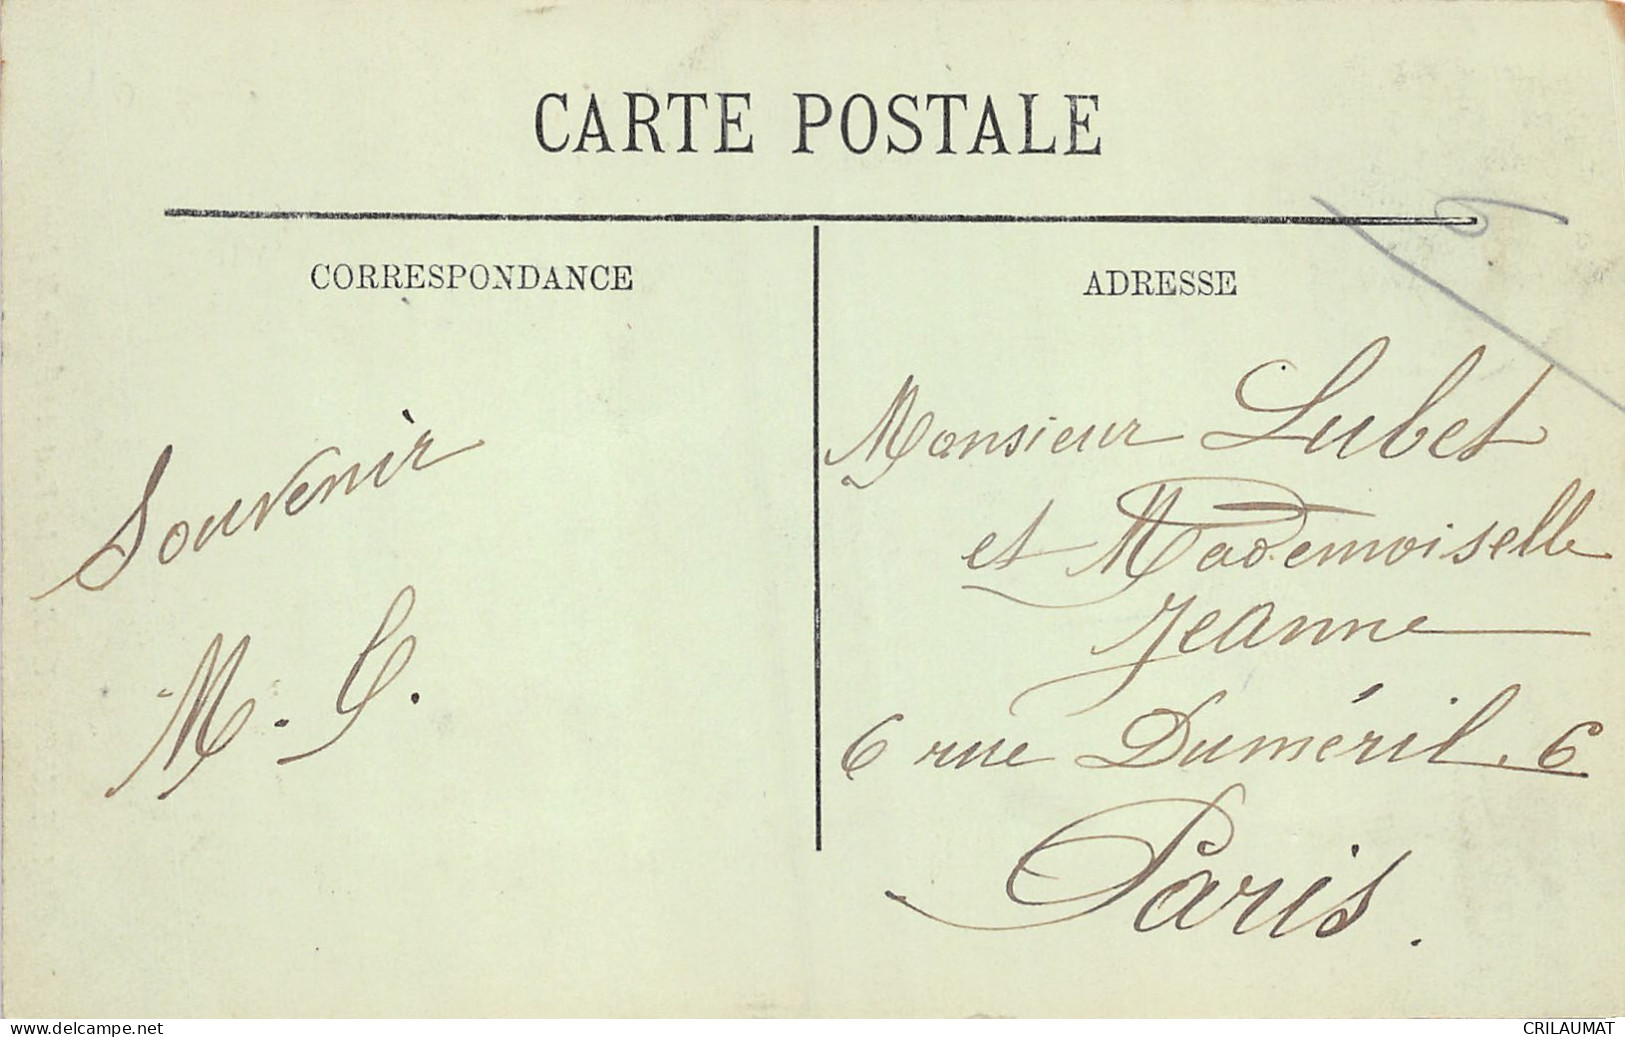 CARTE POSTALE
CORRESPONDANCE
ADRESSE
Souvenir
M. C.
Monsieur Lubet
et Mademoiselle
Jeanne
6 rue Duméril. 6
Paris.
delcampe.net
CRILAUMAT